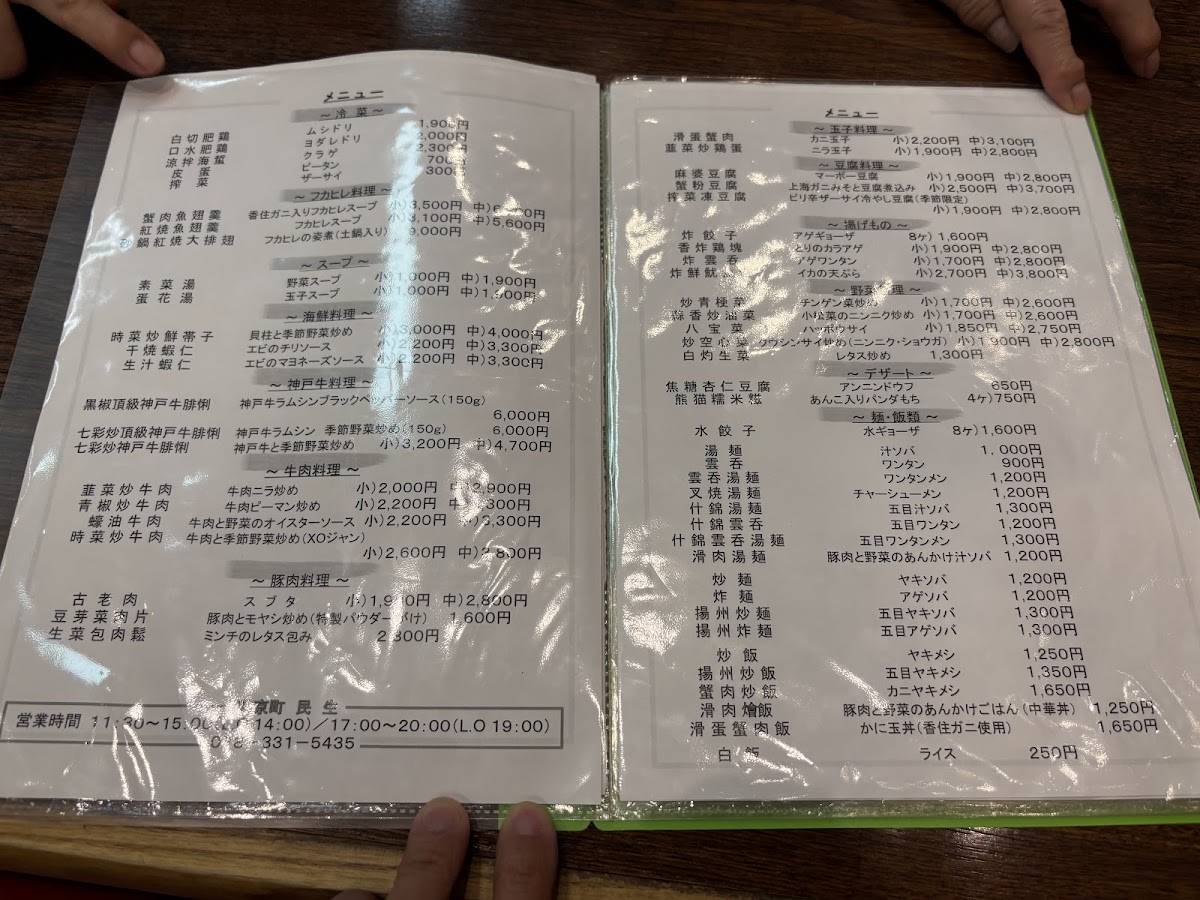 メニュー
～ 冷 菜 ～
白切肥鶏 ムシドリ 1,900円
口水肥鶏 ヨダレドリ 2,000円
涼拌海蜇 クラゲ 2,300円
皮 蛋 ピータン
搾 菜 ザーサイ 300円
～ フカヒレ料理 ～
蟹肉魚翅羹 香住ガニ入りフカヒレスープ 小)3,500円
紅焼魚翅羹 フカヒレスープ 小)3,100円 中)5,600円
砂鍋紅焼大排翅 フカヒレの姿煮(土鍋入り) 9,000円
～ スープ ～
素菜湯 野菜スープ 小)1,000円 中)1,900円
蛋花湯 玉子スープ 小)1,000円 中)1,900円
～ 海鮮料理 ～
時菜炒鮮帯子 貝柱と季節野菜炒め 小)3,000円 中)4,000円
干焼蝦仁 エビのチリソース 小)2,200円 中)3,300円
生汁蝦仁 エビのマヨネーズソース 小)2,200円 中)3,300円
～ 神戸牛料理 ～
黒椒頂級神戸牛腓悧 神戸牛ラムシンブラックペッパーソース(150g)
6,000円
七彩炒頂級神戸牛腓悧 神戸牛ラムシン 季節野菜炒め(150g) 6,000円
七彩炒神戸牛腓悧 神戸牛と季節野菜炒め 小)3,200円 中)4,700円
～ 牛肉料理 ～
韮菜炒牛肉 牛肉ニラ炒め 小)2,000円 中)2,900円
青椒炒牛肉 牛肉ピーマン炒め 小)2,200円
蠔油牛肉 牛肉と野菜のオイスターソース 小)2,200円 中)3,300円
時菜炒牛肉 牛肉と季節野菜炒め(XOジャン)
小)2,600円 中)3,800円
～ 豚肉料理 ～
古老肉 スブタ 小)1,900円 中)2,800円
豆芽菜肉片 豚肉とモヤシ炒め(特製パウダーがけ) 1,600円
生菜包肉鬆 ミンチのレタス包み 2,800円
京町 民 生
営業時間 11:30～15:00( 14:00)／17:00～20:00(L.O 19:00)
331-5435
メニュー
～ 玉子料理 ～
滑蛋蟹肉 カニ玉子 小)2,200円 中)3,100円
韮菜炒鶏蛋 ニラ玉子 小)1,900円 中)2,800円
～ 豆腐料理 ～
麻婆豆腐 マーボー豆腐 小)1,900円 中)2,800円
蟹粉豆腐 上海ガニみそと豆腐煮込み 小)2,500円 中)3,700円
搾菜凍豆腐 ピリ辛ザーサイ冷やし豆腐(季節限定)
小)1,900円 中)2,800円
～ 揚げもの ～
炸餃子 アゲギョーザ 8ヶ)1,600円
香炸鶏塊 とりのカラアゲ 小)1,900円 中)2,800円
炸雲呑 アゲワンタン 小)1,700円 中)2,800円
炸鮮魷 イカの天ぷら 小)2,700円 中)3,800円
～ 野菜料理 ～
炒青梗菜 チンゲン菜炒め 小)1,700円 中)2,600円
蒜香炒油菜 小松菜のニンニク炒め 小)1,700円 中)2,600円
八宝菜 ハッポウサイ 小)1,850円 中)2,750円
炒空心菜 クウシンサイ炒め(ニンニク・ショウガ) 小)1,900円 中)2,800円
白灼生菜 レタス炒め 1,300円
～ デザート ～
焦糖杏仁豆腐 アンニンドウフ 650円
熊猫糯米糍 あんこ入りパンダもち 4ヶ)750円
～ 麺・飯類 ～
水餃子 水ギョーザ 8ヶ)1,600円
湯麺 汁ソバ 1,000円
雲呑 ワンタン 900円
雲呑湯麺 ワンタンメン 1,200円
叉焼湯麺 チャーシューメン 1,200円
什錦湯麺 五目汁ソバ 1,300円
什錦雲呑 五目ワンタン 1,200円
什錦雲呑湯麺 五目ワンタンメン 1,300円
滑肉湯麺 豚肉と野菜のあんかけ汁ソバ 1,200円
炒麺 ヤキソバ 1,200円
炸麺 アゲソバ 1,200円
揚州炒麺 五目ヤキソバ 1,300円
揚州炸麺 五目アゲソバ 1,300円
炒飯 ヤキメシ 1,250円
揚州炒飯 五目ヤキメシ 1,350円
蟹肉炒飯 カニヤキメシ 1,650円
滑肉燴飯 豚肉と野菜のあんかけごはん(中華丼) 1,250円
滑蛋蟹肉飯 かに玉丼(香住ガニ使用) 1,650円
白飯 ライス 250円